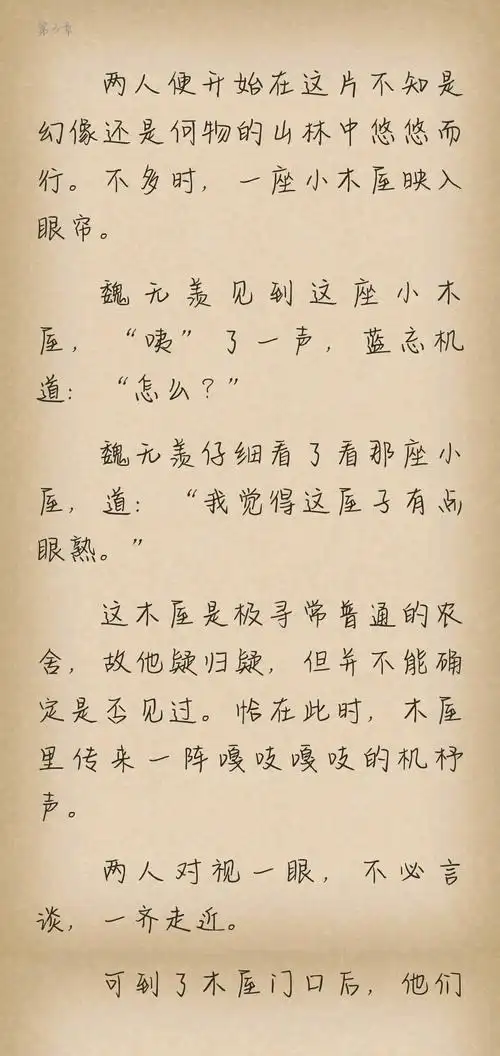 第六章
两人便开始在这片不知是
幻像还是何物的山林中悠悠而
行。不多时，一座小木屋映入
眼帘。
魏无羡见到这座小木
屋，“咦”了一声，蓝忘机
道：“怎么？”
魏无羡仔细看了看那座小
屋，道：“我觉得这屋子有点
眼熟。”
这木屋是极寻常普通的农
舍，故他疑归疑，但并不能确
定是否见过。恰在此时，木屋
里传来一阵嘎吱嘎吱的机杼
声。
两人对视一眼，不必言
谈，一齐走近。
可到了木屋门口后，他们